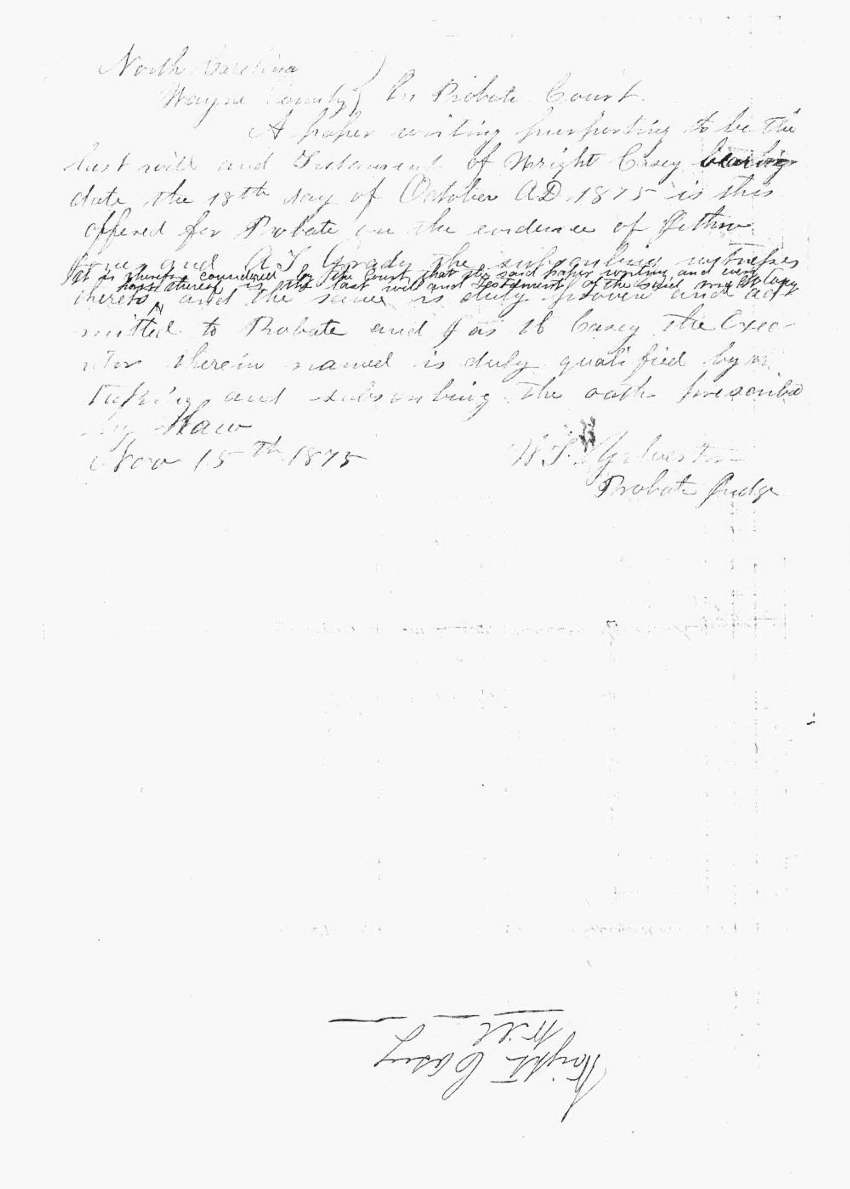 North Carolina
Wayne County } In Probate Court.
A paper writing purporting to be the
last will and Testament of Wright Casey bearing
date the 18th day of October AD. 1875 is this
offered for Probate on the evidence of Jethro
and A.T. Grady the subscribing witnesses
It is therefore considered by the Court that the said paper writing and every
part thereof is the last will and Testament of the said Wright Casey
thereto and the same is duly proven and ad
mitted to Probate and Jas H Casey the Exec-
utor therein named is duly qualified by
taking and subscribing the oath prescribed
by Law
Nov 15th 1875
Probate Judge
Wright Casey
Will